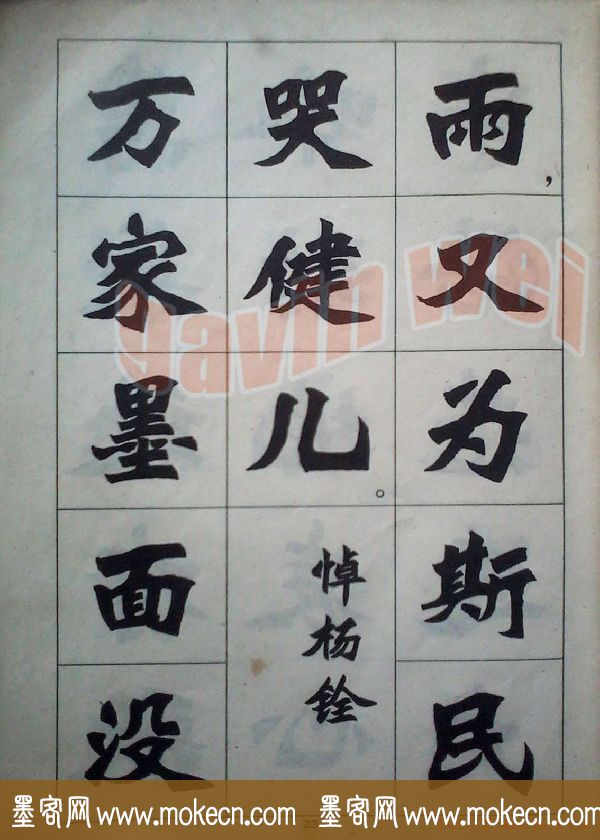 雨，又为斯民
哭健儿。
悼杨铨
万家墨面没
gavin wei
墨客网 www.mokecn.com 墨客网 www.mokecn.com